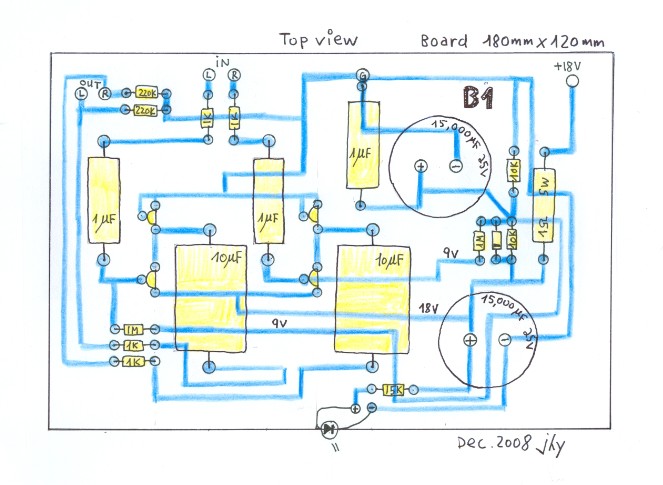 Top view
Board 180mm x 120mm
IN
+18V
OUT
L R
L R
G
B1
220K
220K
1K
1K
15,000µF
25V
1µF
10K
5W
1µF
1µF
1M
10K
9V
10µF
10µF
15,000µF
25V
18V
9V
1M
1K
1K
Dec. 2008 jhy